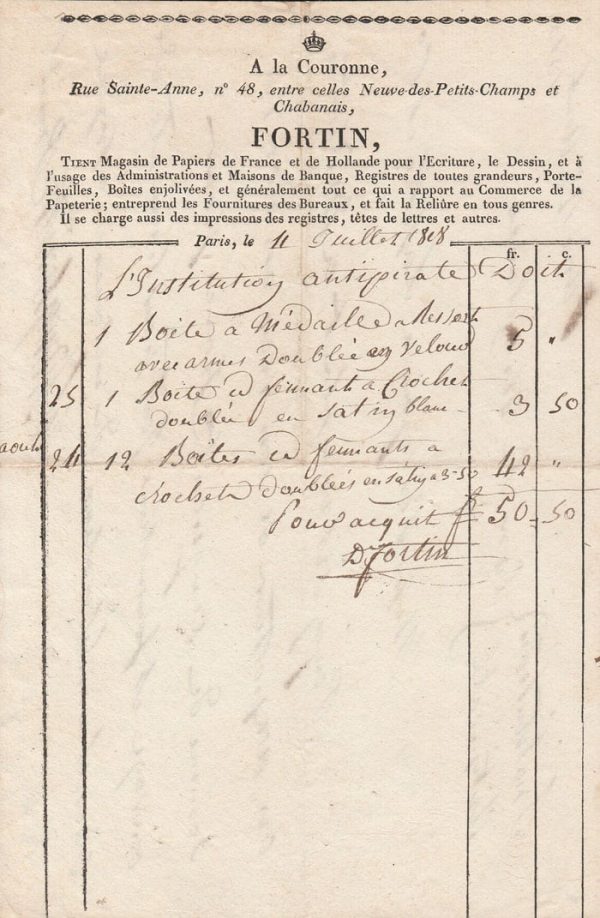 A la Couronne,
Rue Sainte-Anne, n° 48, entre celles Neuve-des-Petits-Champs et
Chabanais,
FORTIN,
TIENT Magasin de Papiers de France et de Hollande pour l'Ecriture, le Dessin, et à
l'usage des Administrations et Maisons de Banque, Registres de toutes grandeurs, Porte-
Feuilles, Boîtes enjolivées, et généralement tout ce qui a rapport au Commerce de la
Papeterie; entreprend les Fournitures des Bureaux, et fait la Reliûre en tous genres.
Il se charge aussi des impressions des registres, têtes de lettres et autres.
Paris, le 11 Juillet 1818
fr. c.
L'Institution antipirate Doit
1 Boite a Médaille a Ressort
avec armes Doublée en velour 5 "
25 1 Boite id fermant a Crochet
doublée en satin blanc 3 50
aout 24 12 Boîtes id fermants a
crochet doublées en satin a 3-50 42 "
Pour acquit f 50-50
D. Fortin